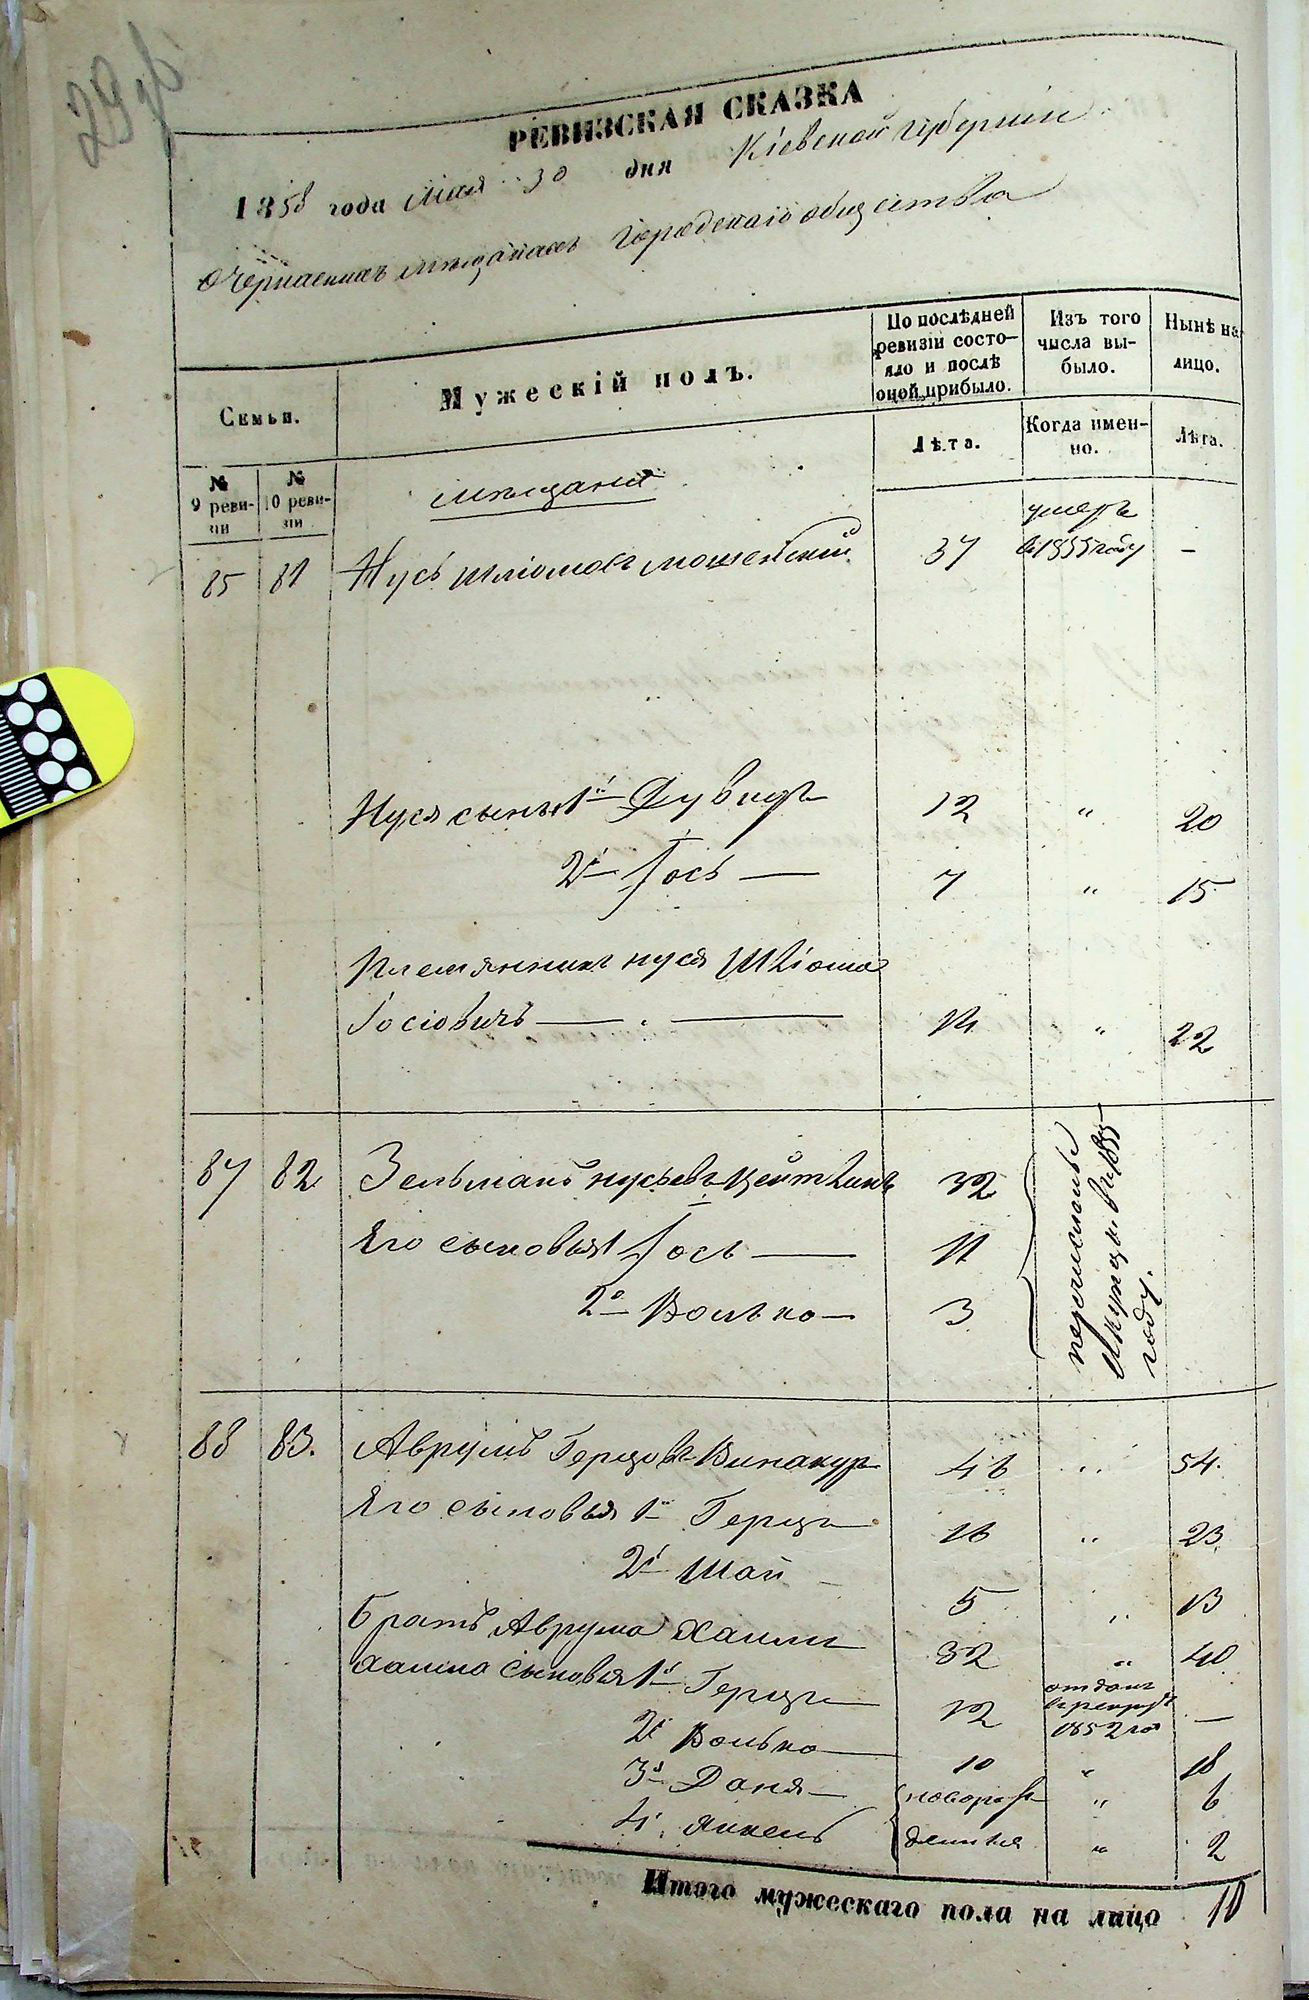 29 об
РЕВИЗСКАЯ СКАЗКА
1858 года Мая 30 дня Кіевской губерніи
о мещанахъ городскаго общества
Семьи.
Мужескій полъ.
По послѣдней ревизіи состояло и послѣ оной прибыло.
Изъ того числа выбыло.
Нынѣ на лицо.
№ 9 ревизіи
№ 10 ревизіи
Лѣта.
Когда именно.
Лѣта.
мещане
85 81 Нусь Шліомовъ Мошенскій 37 умеръ въ 1855 году —
Нуся сынья 1й Дувидъ 12 " 20
2й Іось — 7 " 15
Племянникъ Нуся Шліома
Іосіовичъ — 14 " 22
87 82 Зельманъ Нусьевъ Цейтлинъ 32
Его сыновья 1 Іось — 11
2й Волько — 3
перечислены въ купцы въ году.
88 83. Аврумъ Герцовъ Винакуръ 46 " 54.
Его сыновья 1й Герцъ 16 " 23
2й Шай 5 " 13
Братъ Аврума Хаимъ 32 " 40
Хаима сыновья 1й Герцъ 12 отданъ въ рекруты 1852 год —
2й Волько — 10 " 18
3й Даня — новорож " 6
4й Янкель денныя " 2
Итого мужескаго пола на лицо 10